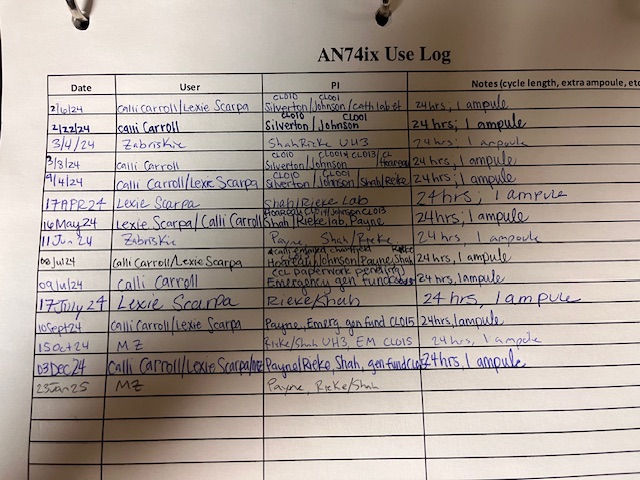 AN74ix Use Log
Date User PI Notes (cycle length, extra ampoule, etc
2/6/24 Calli Carroll/Lexie Scarpa Silverton/Johnson/Cath label CL010 CL001 24hrs, 1 ampule
2/22/24 Calli Carroll Silverton/Johnson CL010 CL001 24 hrs, 1 ampule
3/4/24 Zabriskie Shah Rieke UH3 24 hrs, 1 ampoule
3/8/24 Calli Carroll Silverton/Johnson CL010 24 hrs, 1 ampule
4/4/24 Calli Carroll/Lexie Scarpa Silverton/Johnson/Shah/Rieke CL010 24 hrs, 1 ampule
17APR24 Lexie Scarpa 24 hrs, 1 ampule
16May24 Lexie Scarpa/Calli Carroll Shah/Rieke lab, Payne 24hrs, 1 ampule
11Jun24 Zabriskie Payne Shah Rieke 24 hrs, 1 ampoule
Calli Carroll/Lexie Scarpa 24 hrs, 1 ampule
09Jul24 Calli Carroll Emergency gen fund 24 hrs, 1 ampule
17July24 Lexie Scarpa Rieke/Shah 24 hrs, 1 ampule
10Sept24 Calli Carroll/Lexie Scarpa Payne, Emerg. gen fund CL015 24hrs, 1 ampule
15Oct24 MZ Rieke/Shah UH3 EM CL015 24 hrs, 1 ampoule
13Dec24 Calli Carroll/Lexie Scarpa Payne/Rieke Shah gen fund 24hrs, 1 ampule
23Jan25 MZ Payne, Rieke/Shah